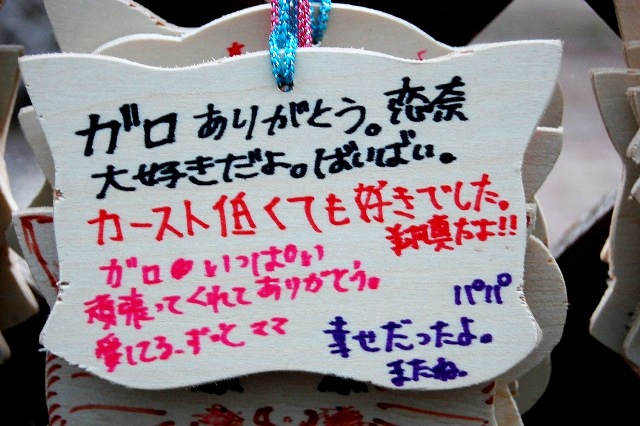 ガロ ありがとう。恋奈
大好きだよ。ばいばい。
カースト低くても好きでした。
翔真だよ!!
ガロ いっぱい
頑張ってくれてありがとう。
愛してる。ずっと ママ
パパ
幸せだったよ。
またね。